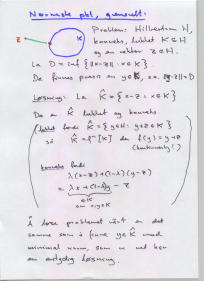 Nærmeste pkt., generelt:
Problem: Hilbertrom H,
konveks, lukket K⊆H
og en vektor z∈H.
z
K
La D = inf {‖x-z‖ : x∈K}
Da finnes y∈K, s.a. ‖y-z‖=D
Løsning: La K̂ = {x-z : x∈K}
Da er K̂ lukket og konveks
(lukket fordi K̂ = {y∈H: y+z∈K}
så K̂ = f⁻¹[K] der f(y)=y+z
konveks fordi
λ(x-z)+(1-λ)(y-z)
= λx+(1-λ)y - z
∈K
Å løse problemet vårt er det
samme som å finne y∈K̂ med
minimal norm, som vi vet har
en entydig løsning.